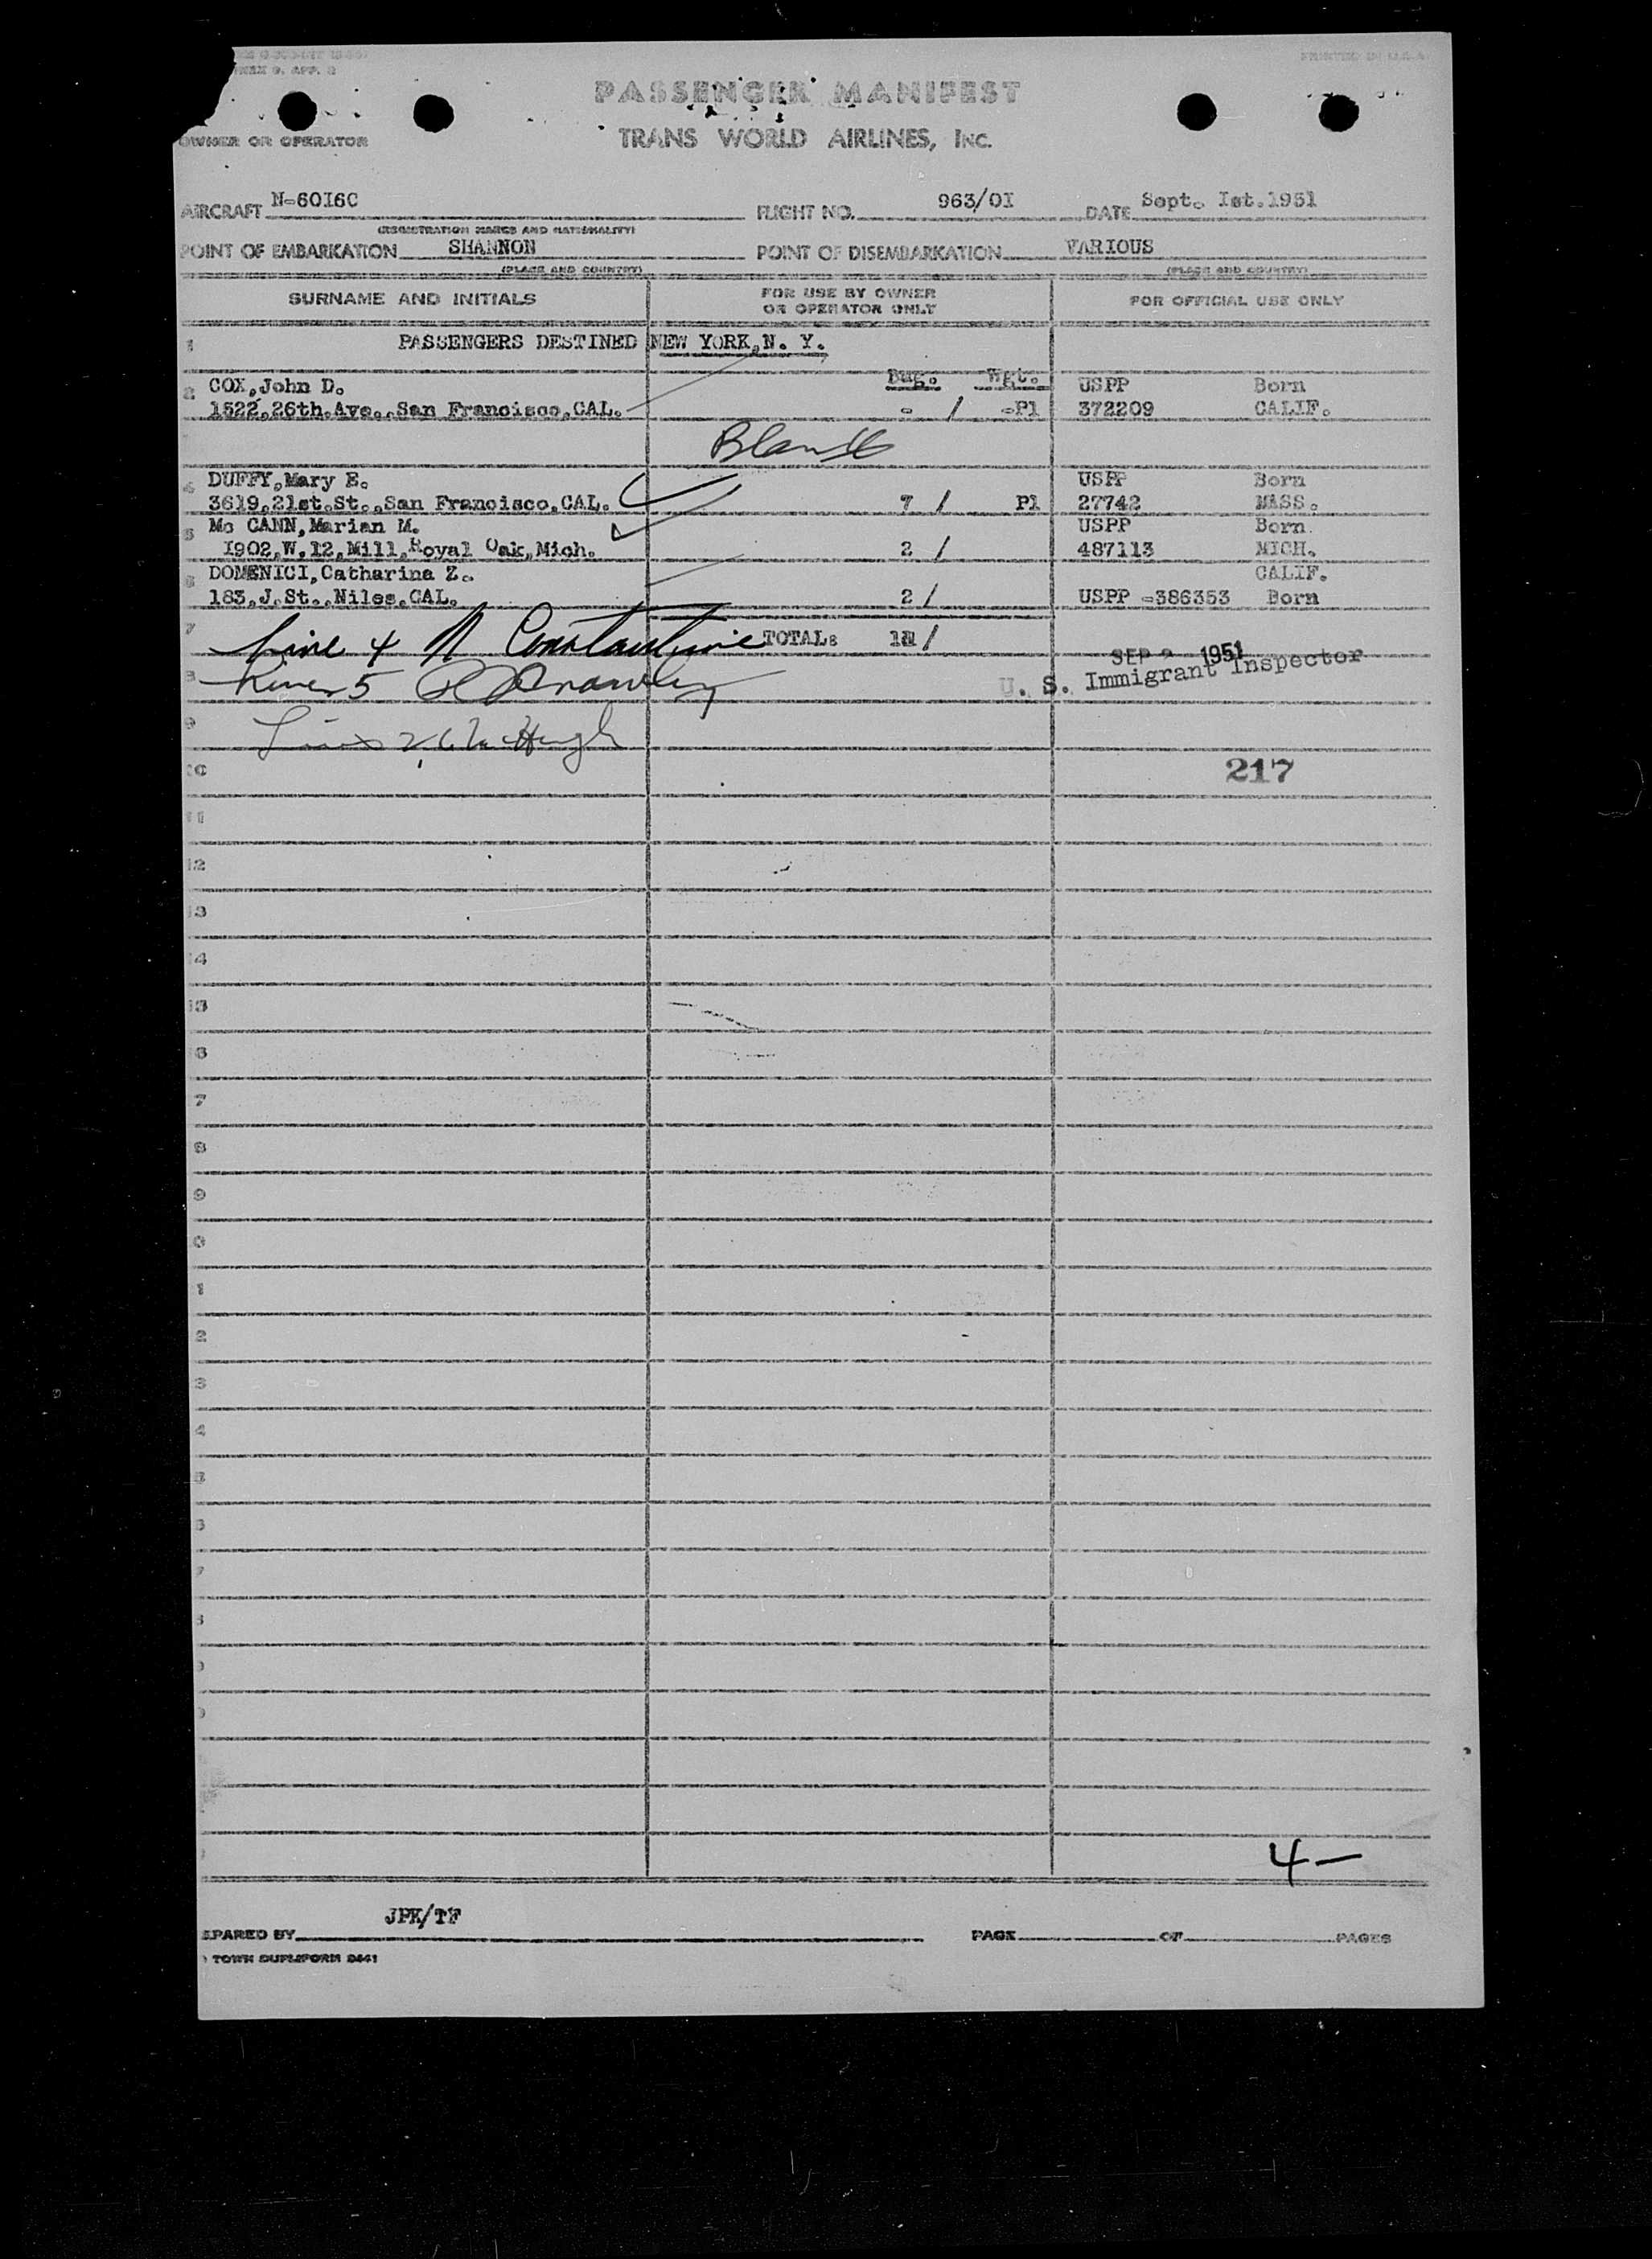 ANNEX 9, APP. 2
PRINTED IN U.S.A.
PASSENGER MANIFEST
OWNER OR OPERATOR
TRANS WORLD AIRLINES, Inc.
AIRCRAFT N-60I6C FLIGHT NO. 963/0I DATE Sept. Ist.1951
(REGISTRATION MARKS AND NATIONALITY)
POINT OF EMBARKATION SHANNON POINT OF DISEMBARKATION VARIOUS
(PLACE AND COUNTRY) (PLACE AND COUNTRY)
SURNAME AND INITIALS FOR USE BY OWNER OR OPERATOR ONLY FOR OFFICIAL USE ONLY
1 PASSENGERS DESTINED NEW YORK,N. Y.
Bag. Wgt.
2 COX,John D. USPP Born
1522,26th.Ave.,San Francisco,CAL. - / -Pl 372209 CALIF.
Blank
4 DUFFY,Mary E. USPP Born
3619,21st.St.,San Francisco,CAL. 7 / Pl 27742 MASS.
5 Mc CANN,Marian M. USPP Born
I902,W.12,Mill,Royal Oak,Mich. 2 / 487113 MICH.
6 DOMENICI,Catharina Z. CALIF.
183,J.St.,Niles,CAL. 2 / USPP -386353 Born
7 Line 4 N Constantine TOTAL: 11 /
SEP 2 1951
8 Line 5
U. S. Immigrant Inspector
9 Lines 2, 6 McHugh
10 217
11
12
13
14
15
6
7
8
9
0
1
2
3
4
5
6
7
8
9
0
4 —
EPARED BY JPK/TF PAGE OF PAGES
TOWN DUPLIFORM 2441